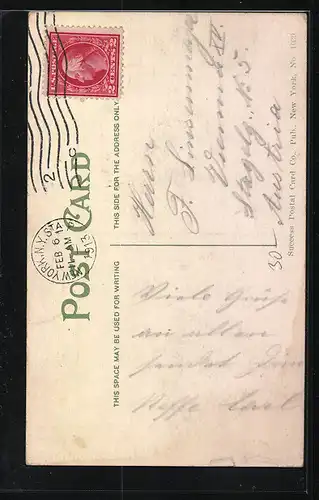 POST CARD
THIS SPACE MAY BE USED FOR WRITING
THIS SIDE FOR THE ADDRESS ONLY.
NEW YORK, N.Y. STA
FEB 6
AM
1913
U.S. POSTAGE
2 CENTS 2
Herrn
F.
Vienna
N. 5
Austria
30
Viele Grüße
an allen
sendet Euer
Neffe Karl
Success Postal Card Co., Pub., New York, No. 1029